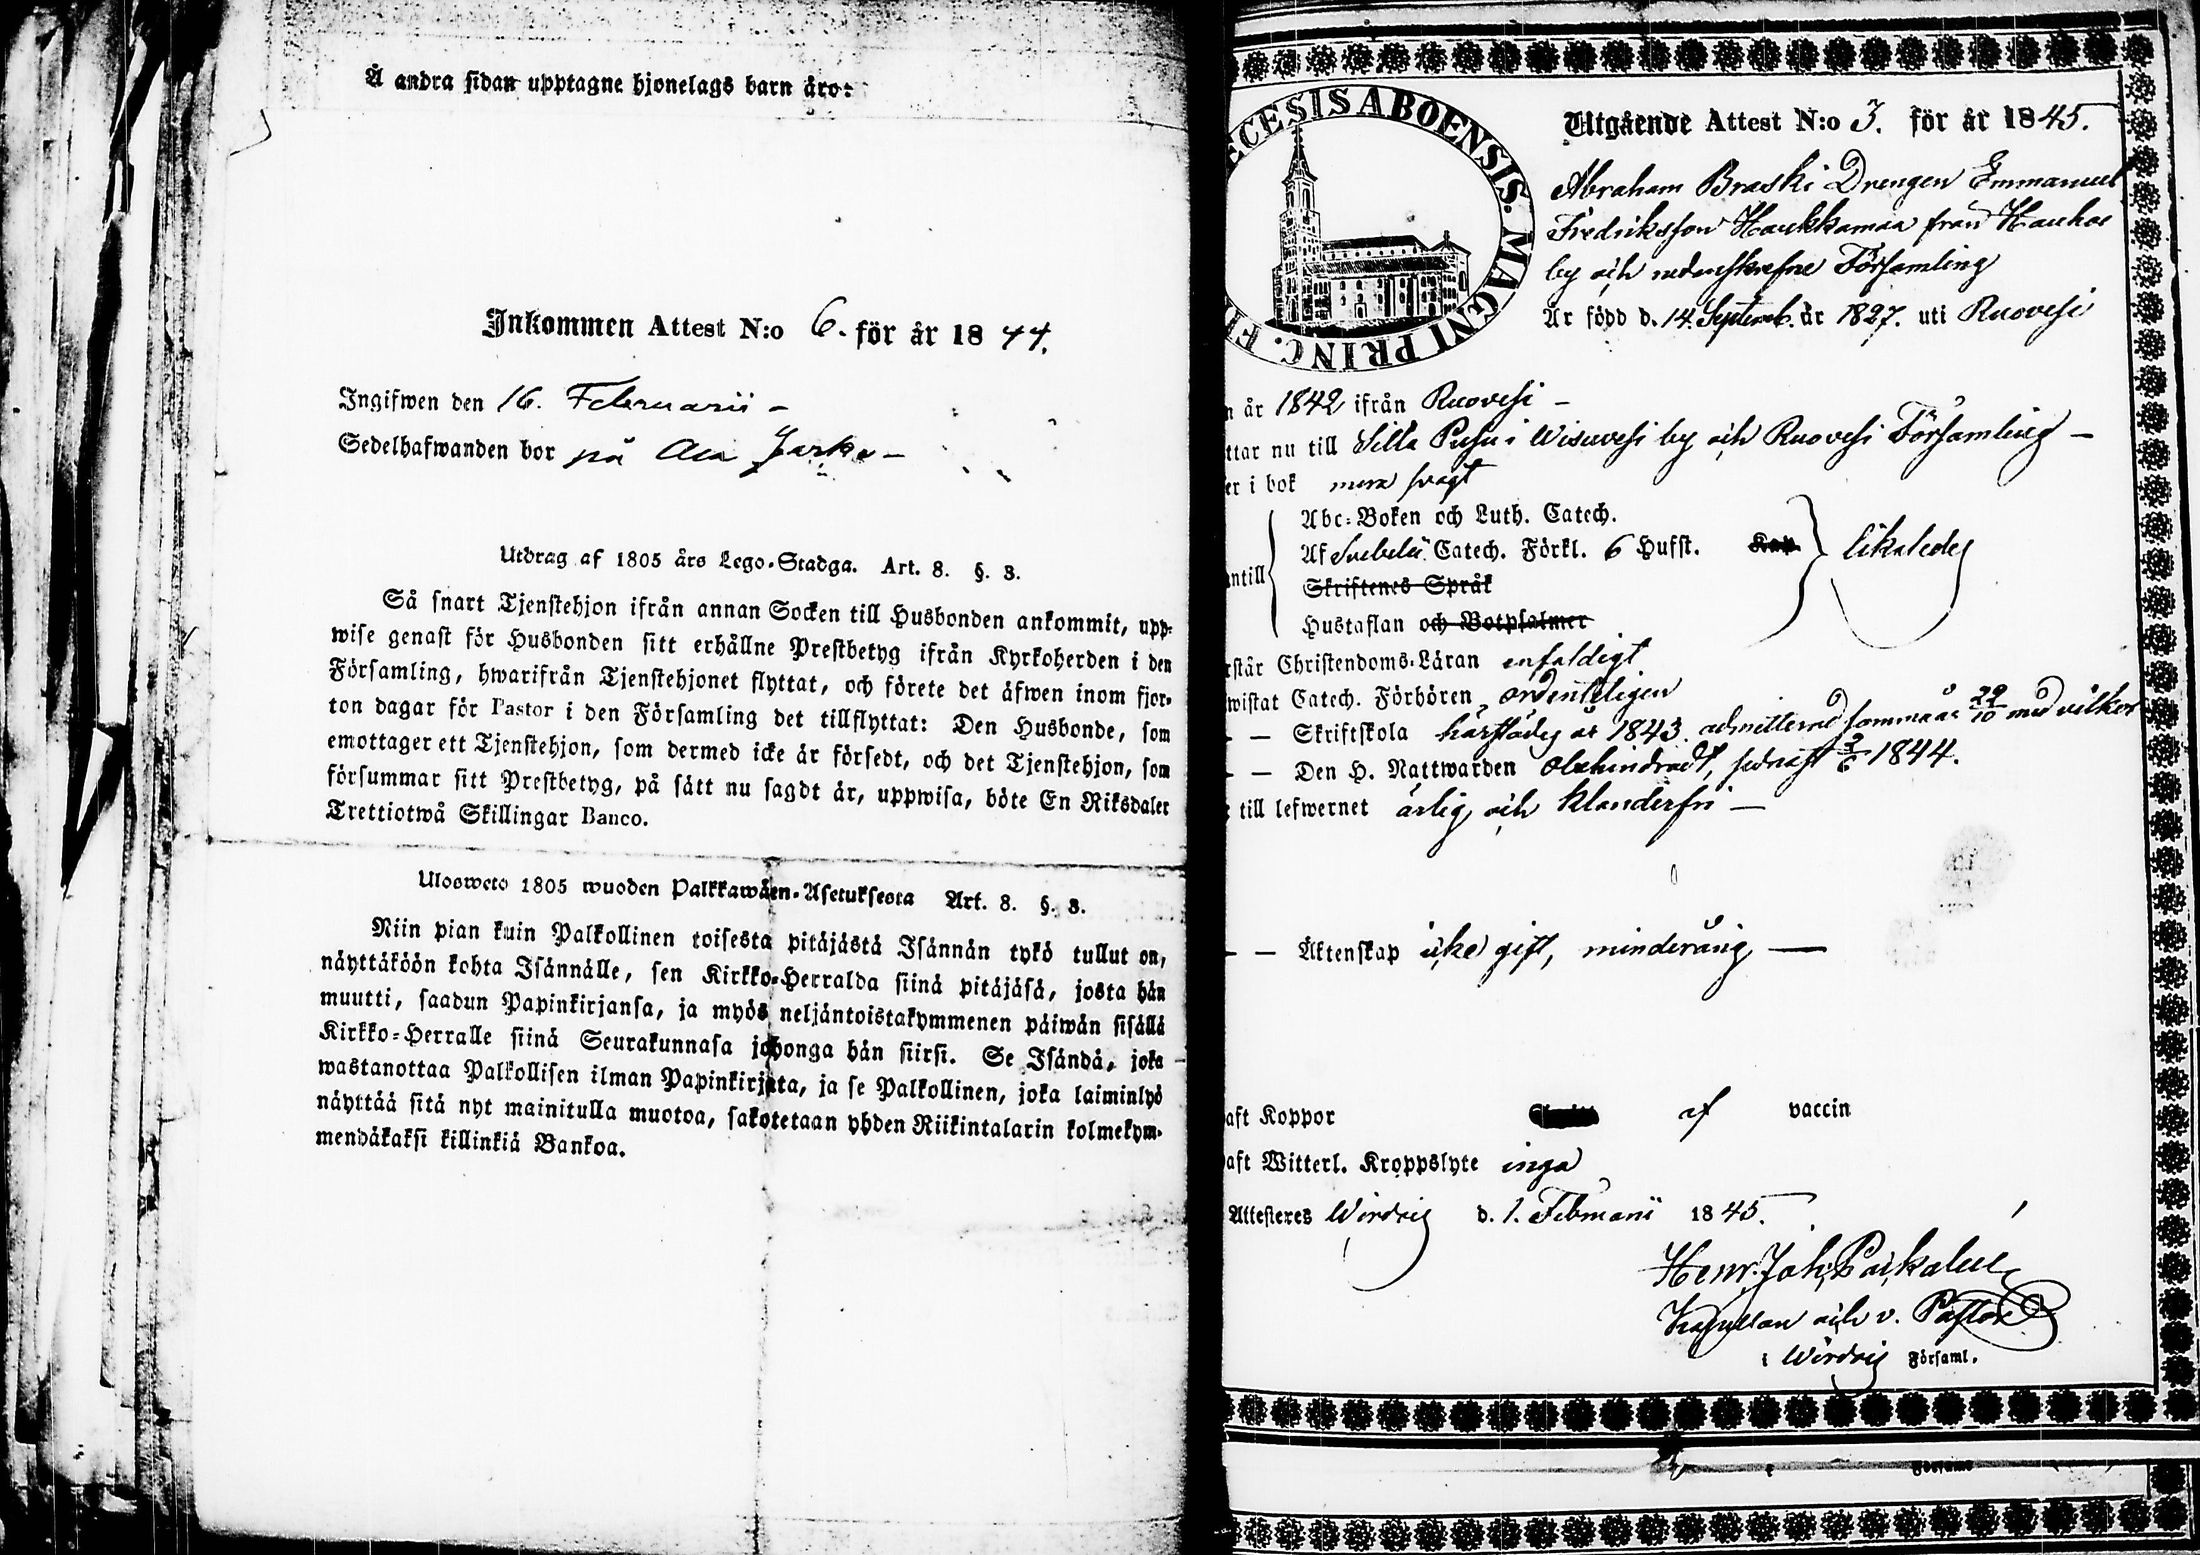 Å andra sidan upptagne hjonelags barn äro:
Inkommen Attest N:o 6. för år 1844.
Ingifwen den 16. Februarii –
Sedelhafwanden bor på Ala Jerke –
Utdrag af 1805 års Lego-Stadga. Art. 8. §. 8.
Så snart Tjenstehjon ifrån annan Socken till Husbonden ankommit, upp-
wise genast för Husbonden sitt erhållne Prestbetyg ifrån Kyrkoherden i den
Församling, hwarifrån Tjenstehjonet flyttat, och förete det äfwen inom fjor-
ton dagar för Pastor i den Församling det tillflyttat: Den Husbonde, som
emottager ett Tjenstehjon, som dermed icke är försedt, och det Tjenstehjon, som
försummar sitt Prestbetyg, på sätt nu sagdt är, uppwisa, böte En Riksdaler
Trettiotwå Skillingar Banco.
Ulosweto 1805 wuoden Palkkawäen-Asetuksesta Art. 8. §. 8.
Niin pian kuin Palkollinen toisesta pitäjästä Isännän tykö tullut on,
näyttäköön kohta Isännälle, sen Kirkko-Herralda siinä pitäjäsä, josta hän
muutti, saadun Papinkirjansa, ja myös neljäntoistakymmenen päiwän sisällä
Kirkko-Herralle siinä Seurakunnasa johonga hän siirsi. Se Isändä, joka
wastanottaa Palkollisen ilman Papinkirjata, ja se Palkollinen, joka laiminlyö
näyttää sitä nyt mainitulla muotoa, sakotetaan yhden Riikintalarin kolmekym-
mendäkaksi killinkiä Bankoa.
ECESIS ABOENSIS. MAGNI PRINC. F
Utgående Attest N:o 3. för år 1845.
Abraham Braski Drengen Emmanuel
Fredriksson Haukkamaa från Hauhae
by och nedanskrefne Församling
Är född d. 14. Septemb. år 1827. uti Ruovesi
n år 1842 ifrån Ruovesi –
ttar nu till Silta Pusu i Wisuvesi by och Ruovesi Församling –
er i bok mera svagt
Abc-Boken och Luth. Catech.
Af Svebelii Catech. Förkl. 6 Hufst. Kap. likaledes
ntill
Skriftenes Språk
Hustaflan och Botpsalmer
rstår Christendoms-Läran enfaldigt
wistat Catech. Förhören ordenteligen
– – Skriftskola härstädes år 1843. admitterad samma år 29/10 med vilkor
– – Den H. Nattwarden obehindradt, sednast 2/6 1844.
till lefwernet ärlig och klanderfri –
– – Äktenskap icke gift, minderårig, –
aft Koppor af vaccin
aft Witterl. Kroppslyte inga
Attesteres Wirdois d. 1. Februarii 1845.
Henr. Joh. Packalen
Kapellan och v. Pastor
i Wirdois Församl.
Församl